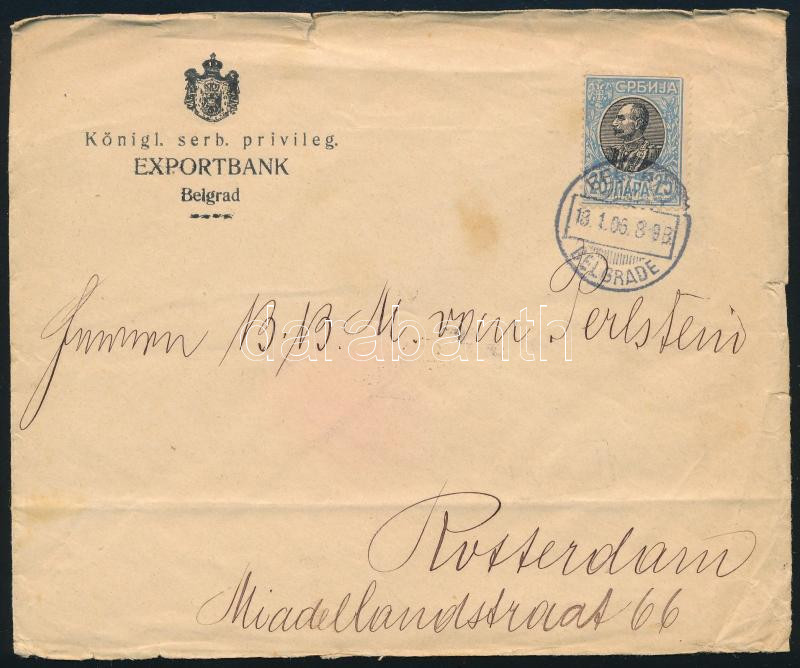 Königl. serb. privileg.
EXPORTBANK
Belgrad
СРБИЈА
25 ПАРА 25
13. 1. 06. 8-9 В.
BELGRADE
Herren B. B. M. van Perlstein
darabanth
Rotterdam
Miadellandstraat 66